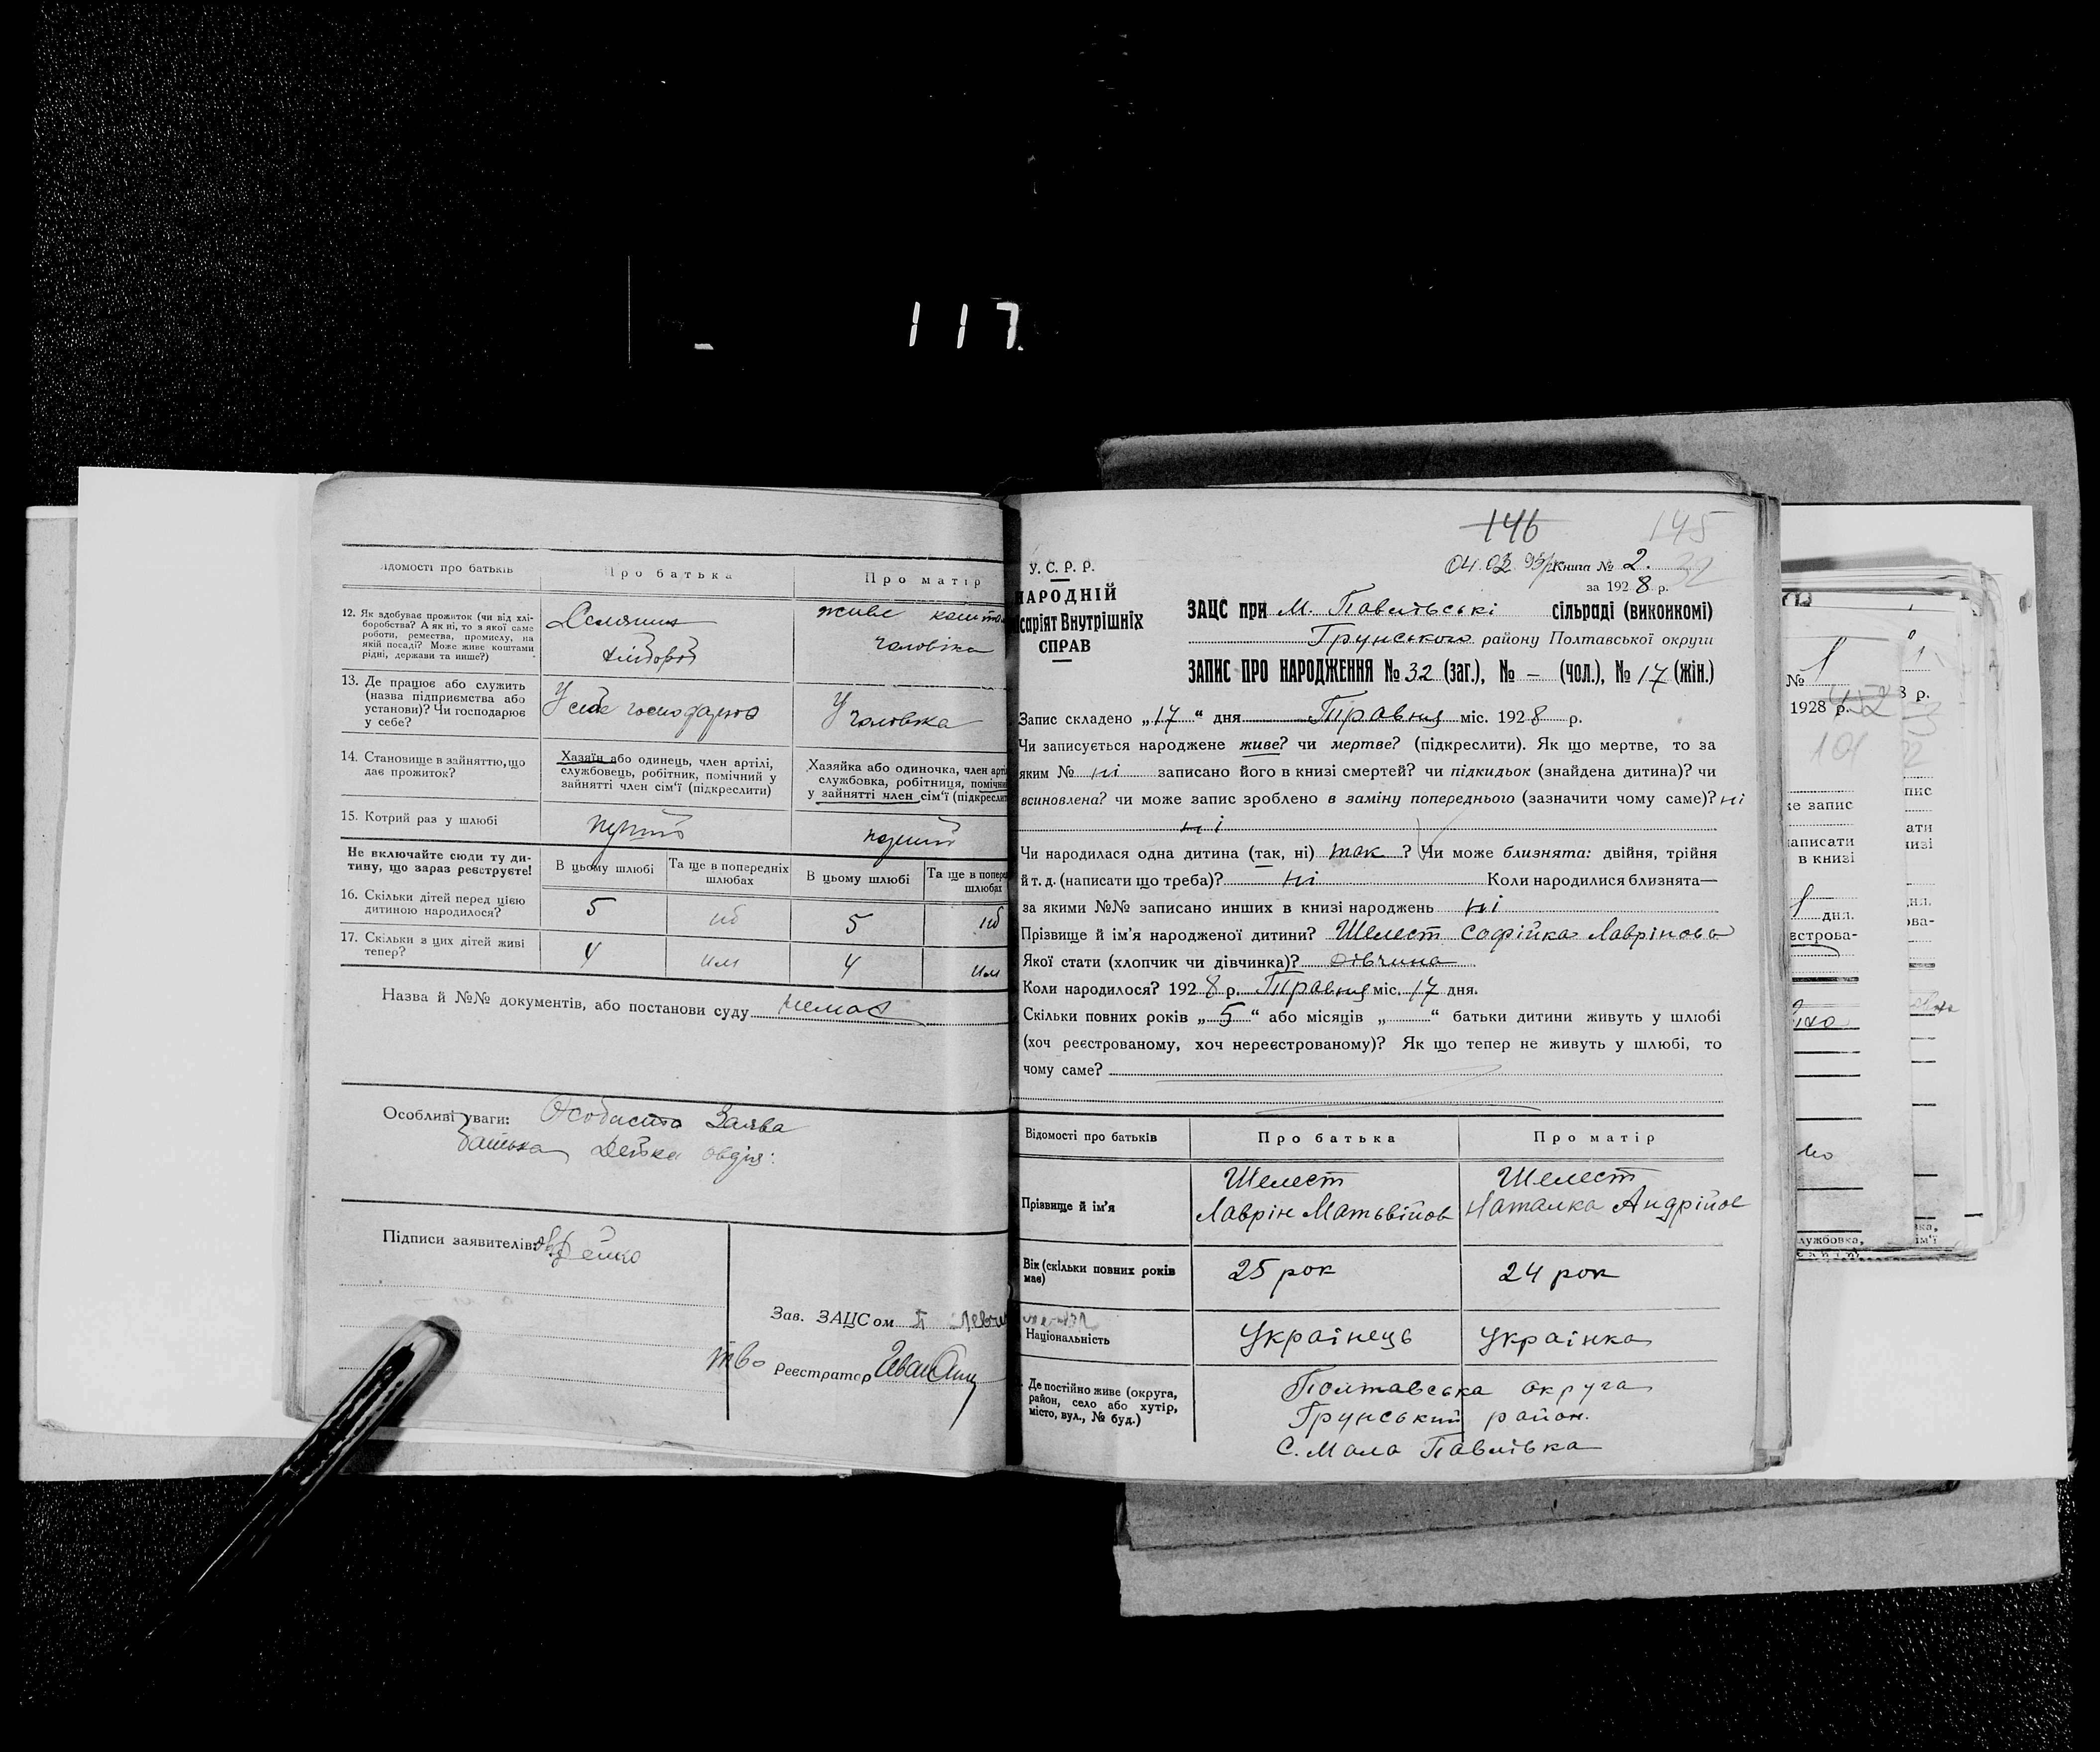 117.
Відомості про батьків
Про батька
Про матір
12. Як вдобуває прожиток (чи від хлі-
боробства? А як ні, то з якої саме
роботи, ремества, промислу, на
якій посаді? Може живе коштами
рідні, держави та инше?)
Селянин
хлібороб
живе кошта
чоловіка
13. Де працює або служить
(назва підприємства або
установи)? Чи господарює
у себе?
У себе господарює
У чоловіка
14. Становище в зайняттю, що
дає прожиток?
Хазяїн або одинець, член артілі,
службовець, робітник, помічний у
зайнятті член сім'ї (підкреслити)
Хазяйка або одиночка, член арті
службовка, робітниця, помічни
у зайнятті член сім'ї (підкреслит
15. Котрий раз у шлюбі
перший
перший
Не включайте сюди ту ди-
тину, що зараз реєструєте!
В цьому шлюбі
Та ще в попередніх
шлюбах
В цьому шлюбі
Та ще в попере
шлюбах
16. Скільки дітей перед цією
дитиною народилося?
5
5
17. Скільки з цих дітей живі
тепер?
4
4
Назва й №№ документів, або постанови суду немає
Особливі уваги: Особиста Заява
батька Дейка
Підписи заявителів: Дейко
Зав. ЗАЦСом
тво Реєстратор Іван
146
145
32
04.02 93р
Книга № 2.
за 1928 р.
У. С. Р. Р.
НАРОДНІЙ
саріят Внутрішніх
СПРАВ
ЗАЦС при М. Павлівські сільраді (виконкомі)
Грунського району Полтавської округи
ЗАПИС ПРО НАРОДЖЕННЯ № 32 (заг.), № – (чол.), № 17 (жін.)
Запис складено „17“ дня Травня міс. 1928 р.
Чи записується народжене живе? чи мертве? (підкреслити). Як що мертве, то за
яким № ні записано його в книзі смертей? чи підкидьок (знайдена дитина)? чи
всиновлена? чи може запис зроблено в заміну попереднього (зазначити чому саме)? ні
ні
Чи народилася одна дитина (так, ні) так ? Чи може близнята: двійня, трійня
й т. д. (написати що треба)? ні Коли народилися близнята—
за якими №№ записано инших в книзі народжень ні
Прізвище й ім'я народженої дитини? Шелест Софійка Лаврінова
Якої стати (хлопчик чи дівчинка)? дівчина
Коли народилося? 1928 р. Травня міс. 17 дня.
Скільки повних років „5“ або місяців „ “ батьки дитини живуть у шлюбі
(хоч реєстрованому, хоч нереєстрованому)? Як що тепер не живуть у шлюбі, то
чому саме?
Відомості про батьків
Про батька
Про матір
Прізвище й ім'я
Шелест
Лаврін Матьвійов
Шелест
Наталка Андрійов
Вік (скільки повних років
має)
25 рок
24 рок
Національність
Українець
Українка
Де постійно живе (округа,
район, село або хутір,
місто, вул., № буд.)
Полтавська округа
Грунський район.
С. Мала Павлівка
№ 1
1928 р.
8 р.
101
е запис
пис
аписати
ати
в книзі
низі
1 дня.
ня.
естрова-
ова-
лужбовка,
ім'ї